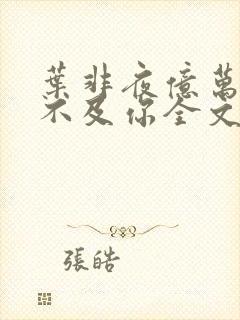 葉非夜億萬
不及你全文
張皓